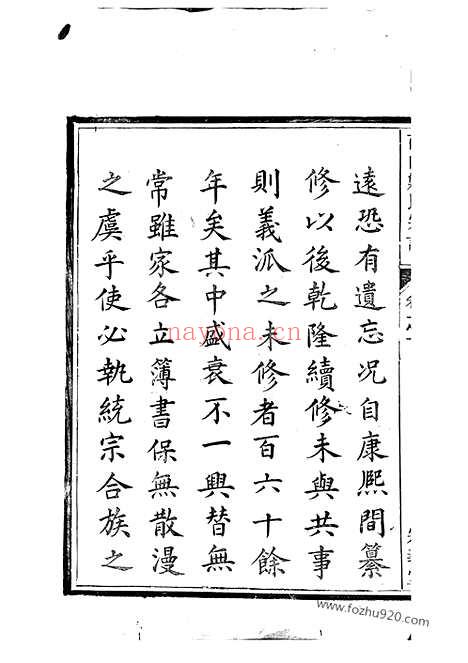 遠恐有遺忘况自康熙間纂
修以後乾隆續修未與共事
則義派之未修者百六十餘
年矣其中盛衰不一興替無
常雖家各立簿書保無散漫
之虞乎使必執統宗合族之
nayona.cn
www.fozhu920.com